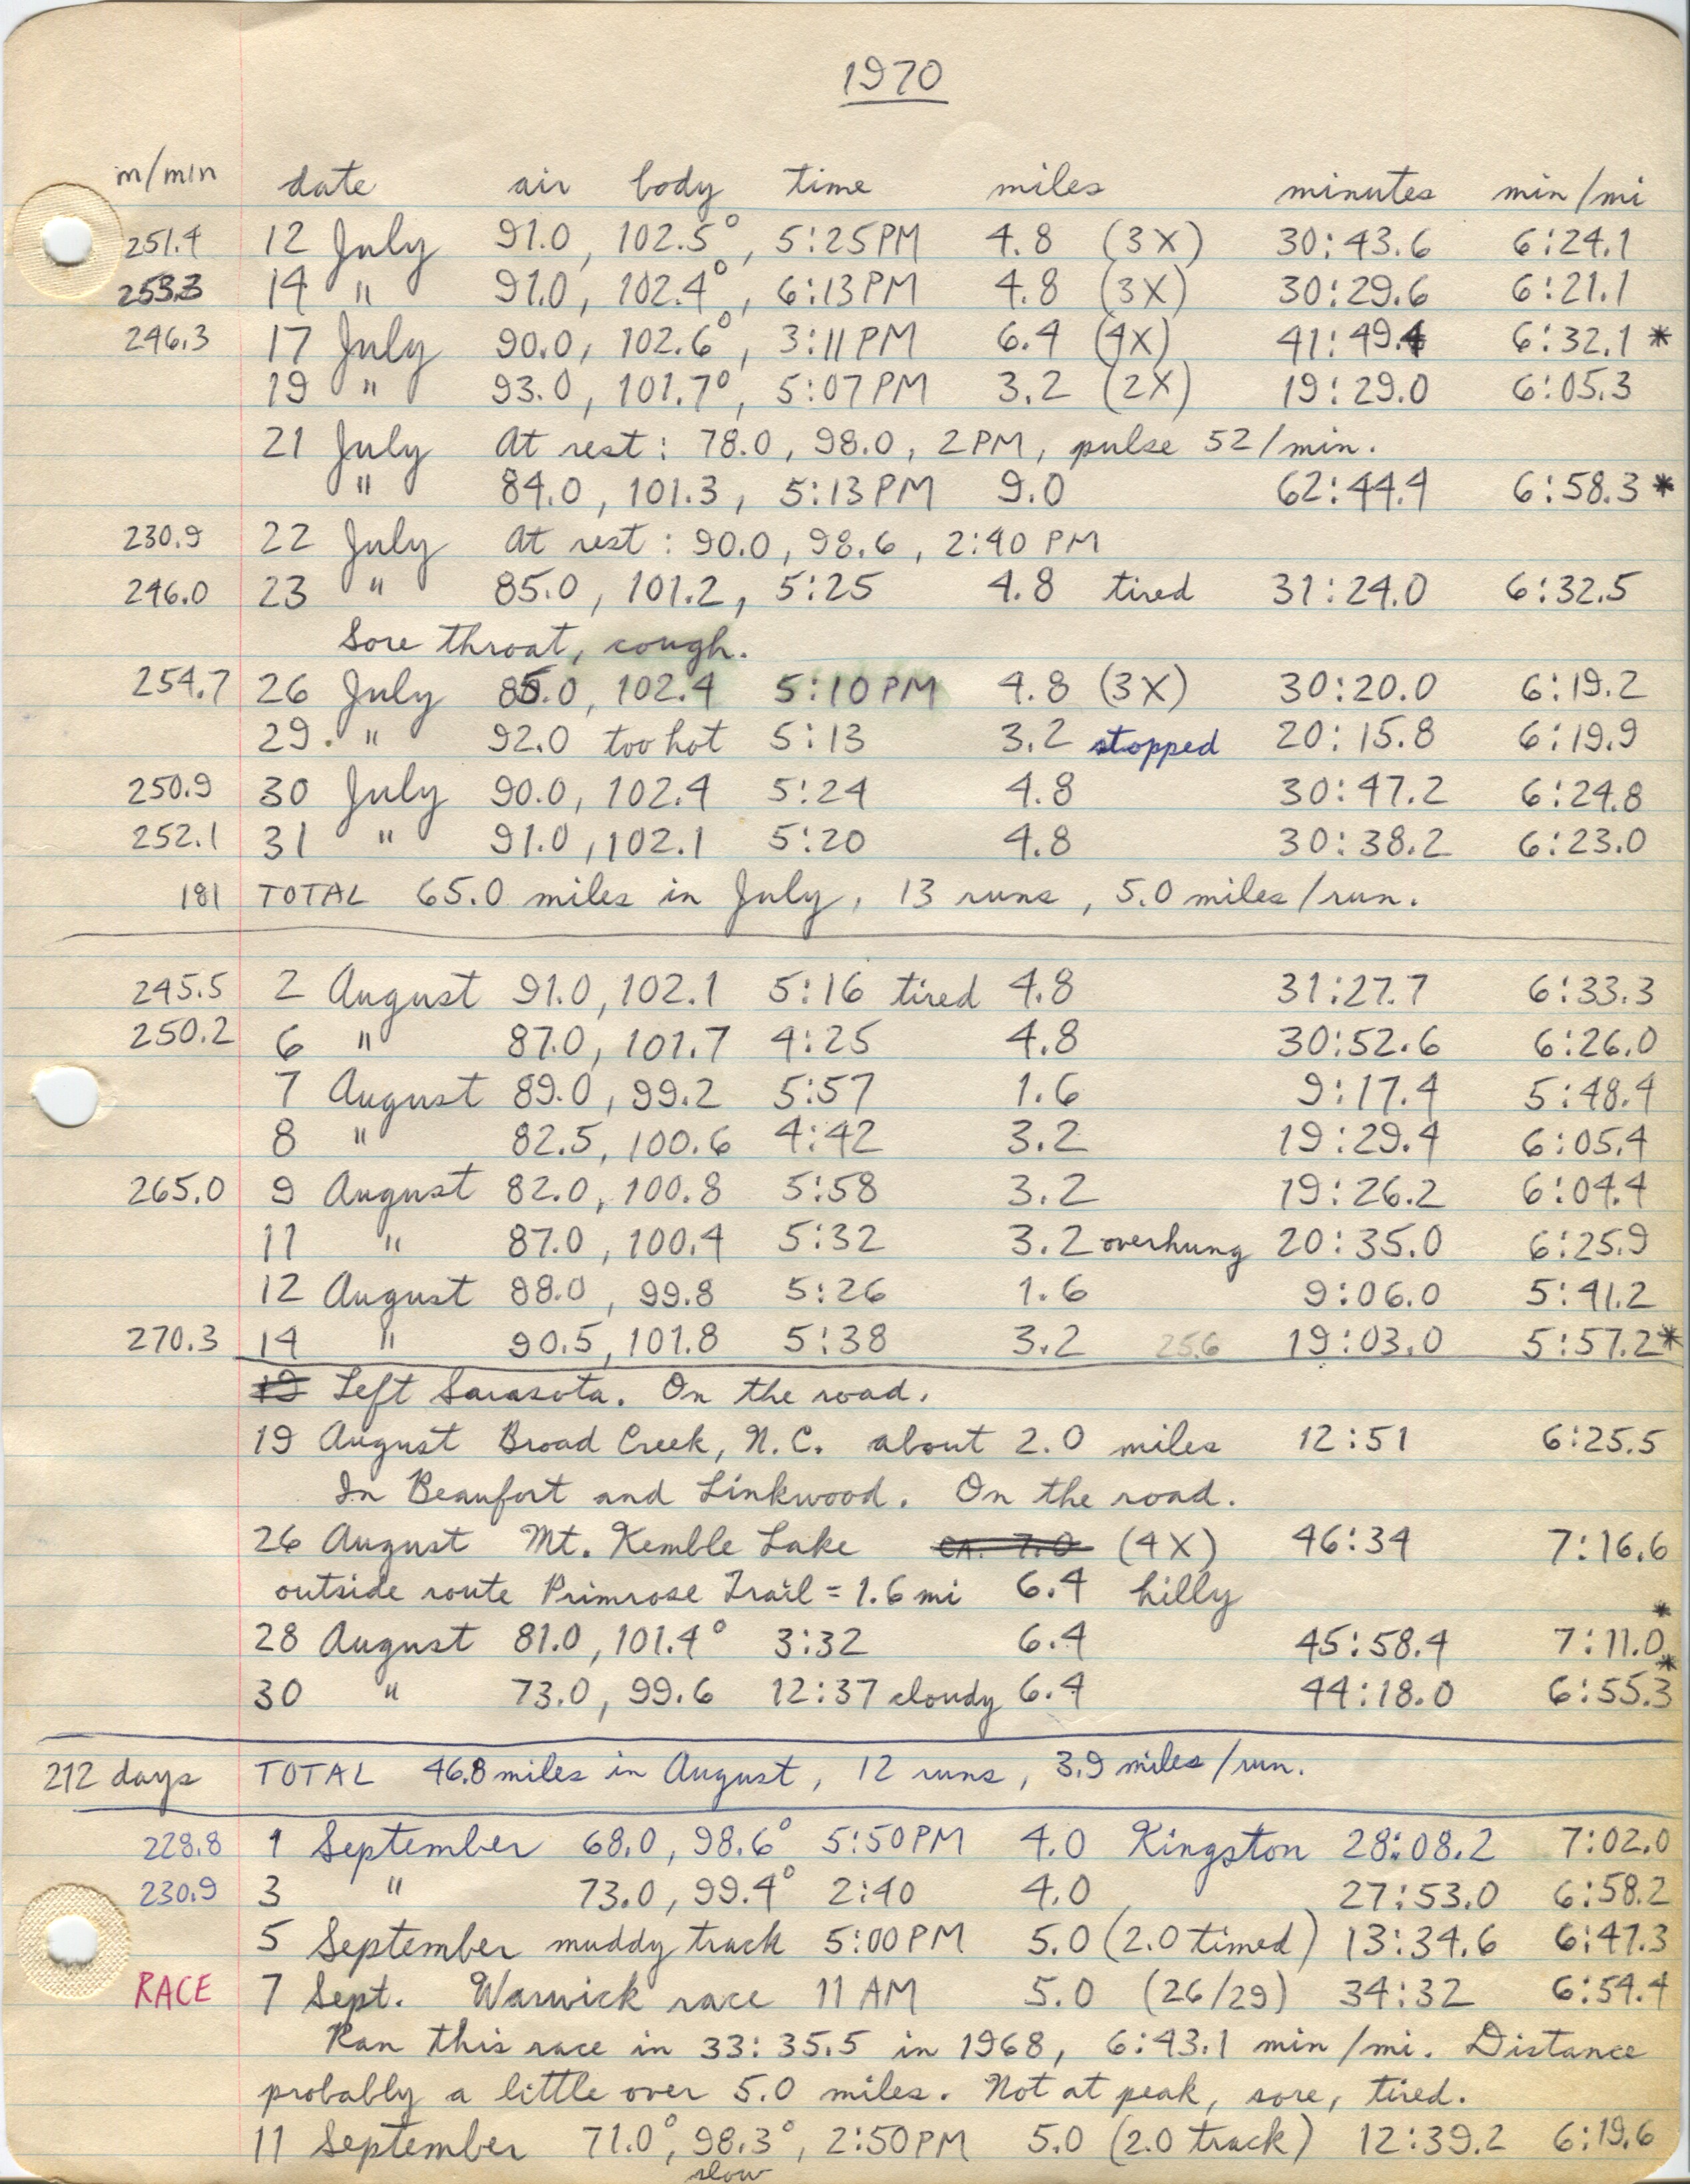 1970
m/min date air body time miles minutes min/mi
251.4 12 July 91.0, 102.5°, 5:25PM 4.8 (3X) 30:43.6 6:24.1
253.3 14 " 91.0, 102.4°, 6:13PM 4.8 (3X) 30:29.6 6:21.1
246.3 17 July 90.0, 102.6°, 3:11PM 6.4 (4X) 41:49.4 6:32.1 *
19 " 93.0, 101.7°, 5:07PM 3.2 (2X) 19:29.0 6:05.3
21 July At rest: 78.0, 98.0, 2PM, pulse 52/min.
" 84.0, 101.3, 5:13PM 9.0 62:44.4 6:58.3 *
230.9 22 July At rest: 90.0, 98.6, 2:40 PM
246.0 23 " 85.0, 101.2, 5:25 4.8 tired 31:24.0 6:32.5
Sore throat, cough.
254.7 26 July 85.0, 102.4 5:10PM 4.8 (3X) 30:20.0 6:19.2
29. " 92.0 too hot 5:13 3.2 stopped 20:15.8 6:19.9
250.9 30 July 90.0, 102.4 5:24 4.8 30:47.2 6:24.8
252.1 31 " 91.0, 102.1 5:20 4.8 30:38.2 6:23.0
181 TOTAL 65.0 miles in July, 13 runs, 5.0 miles/run.
245.5 2 August 91.0, 102.1 5:16 tired 4.8 31:27.7 6:33.3
250.2 6 " 87.0, 101.7 4:25 4.8 30:52.6 6:26.0
7 August 89.0, 99.2 5:57 1.6 9:17.4 5:48.4
8 " 82.5, 100.6 4:42 3.2 19:29.4 6:05.4
265.0 9 August 82.0, 100.8 5:58 3.2 19:26.2 6:04.4
11 " 87.0, 100.4 5:32 3.2 overhung 20:35.0 6:25.9
12 August 88.0, 99.8 5:26 1.6 9:06.0 5:41.2
270.3 14 " 90.5, 101.8 5:38 3.2 25.6 19:03.0 5:57.2*
Left Sarasota. On the road.
19 August Broad Creek, N.C. about 2.0 miles 12:51 6:25.5
In Beaufort and Linkwood. On the road.
26 August Mt. Kemble Lake ca. 7.0 (4X) 46:34 7:16.6
outside route Primrose Trail = 1.6 mi 6.4 hilly
28 August 81.0, 101.4° 3:32 6.4 45:58.4 7:11.0 *
30 " 73.0, 99.6 12:37 cloudy 6.4 44:18.0 6:55.3 *
212 days TOTAL 46.8 miles in August, 12 runs, 3.9 miles/run.
228.8 1 September 68.0, 98.6° 5:50PM 4.0 Kingston 28:08.2 7:02.0
230.9 3 " 73.0, 99.4° 2:40 4.0 27:53.0 6:58.2
5 September muddy track 5:00PM 5.0 (2.0 timed) 13:34.6 6:47.3
RACE 7 Sept. Warwick race 11 AM 5.0 (26/29) 34:32 6:54.4
Ran this race in 33:35.5 in 1968, 6:43.1 min/mi. Distance
probably a little over 5.0 miles. Not at peak, sore, tired.
11 September 71.0°, 98.3°, 2:50PM 5.0 (2.0 track) 12:39.2 6:19.6
slow